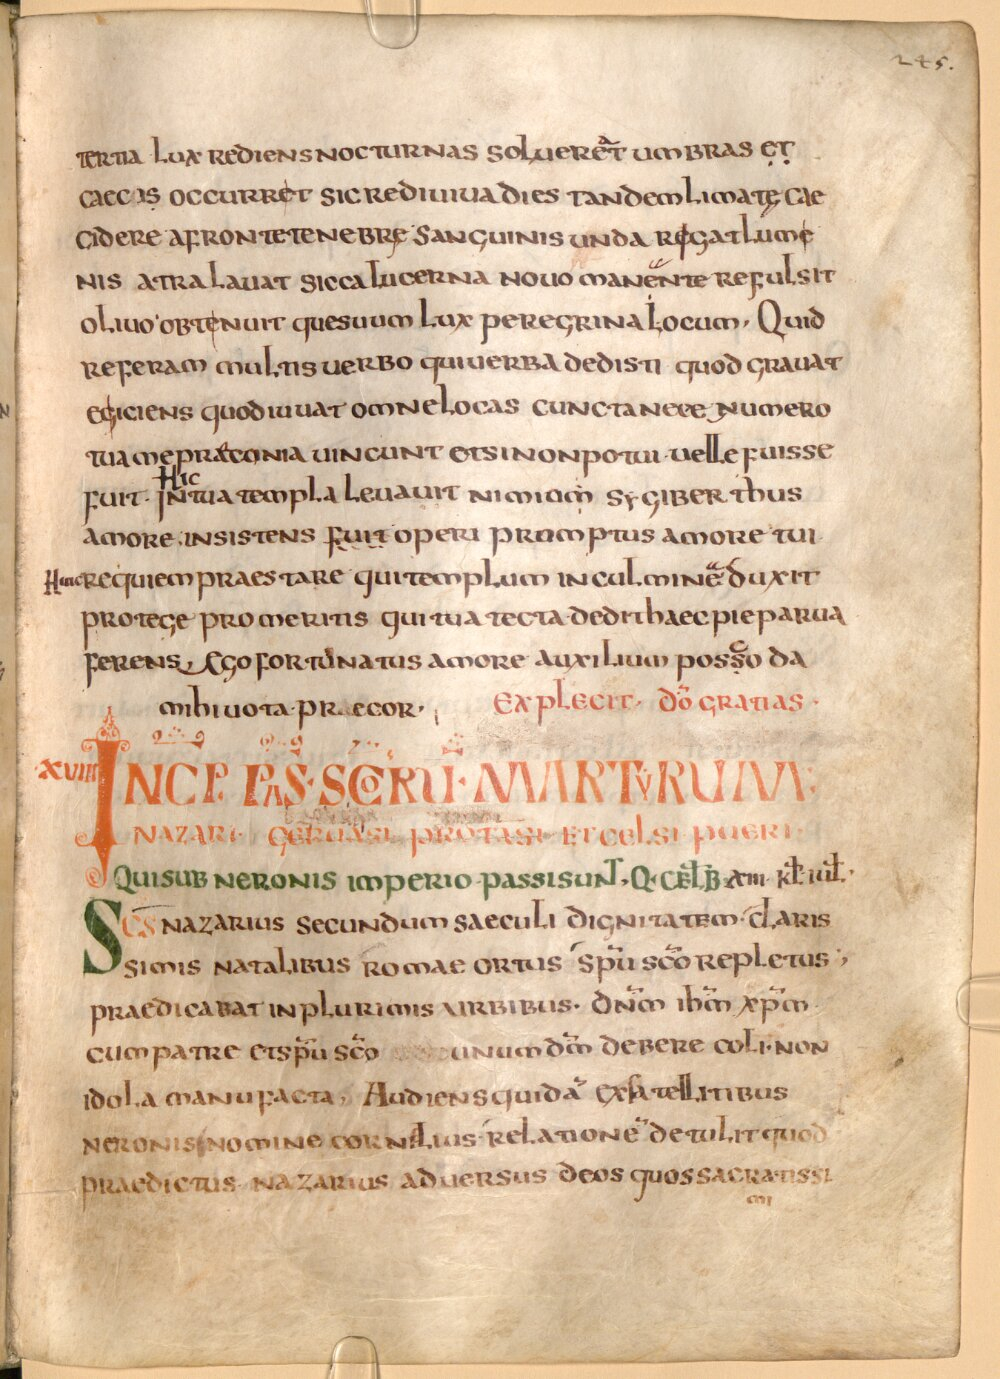 245.
tertia lux rediens nocturnas solveret umbras et
caecis occurret sic rediviva dies tandem limate cae
cidere a fronte tenebre sanguinis unda regat lume
nis atra lavat sicca lucerna novo manente refulsit
olivo obtenuit quesuum lux peregrina locum, Quid
referam multis verbo qui verba dedisti quod gravat
eiciens quod iuvat omne locas cuncta nece numero
tua me praeconia vincunt etsi non potui velle fuisse
Hic
fuit. in tua templa levavit nimium sygiberthus
amore insistens fuit operi promptus amore tui
Hinc requiem praestare qui templum in culmine duxit
protege pro meritis qui tua tecta dedit haec pie parva
ferens, Ego fortunatus amore auxilium posco da
mihi vota praecor. Explecit. dō gratias.
XVIII INCP PAS SCORU MARTYRUM
NAZARI. GERUASI PROTASI ET CELSI PUERI.
Qui sub neronis imperio passi sunt, Q. celeb xiii kl iul.
Scs nazarius secundum saeculi dignitatem claris
simis natalibus romae ortus spū scō repletus,
praedicabat in plurimis uirbibus. dnm ihm xpm
cum patre et spū scō unum dm debere coli. non
idola manu facta, Audiens quidā ex satellitibus
neronis nomine cornelius relatione detulit quod
praedictus nazarius adversus deos quos sacratissi
mi